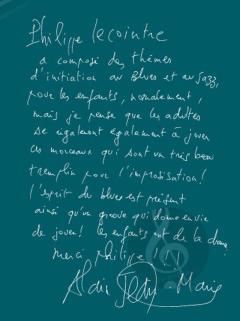 Philippe Lecointre
a composé des thèmes
d'initiation au Blues et au Jazz,
pour les enfants, normalement,
mais je pense que les adultes
se régaleront également à jouer
ces morceaux qui sont un très beau
tremplin pour l'improvisation !
l'esprit du blues est présent
ainsi qu'un groove qui donne envie
de jouer ! les enfants ont de la chance
merci philippe !!
Alain Jean-Marie